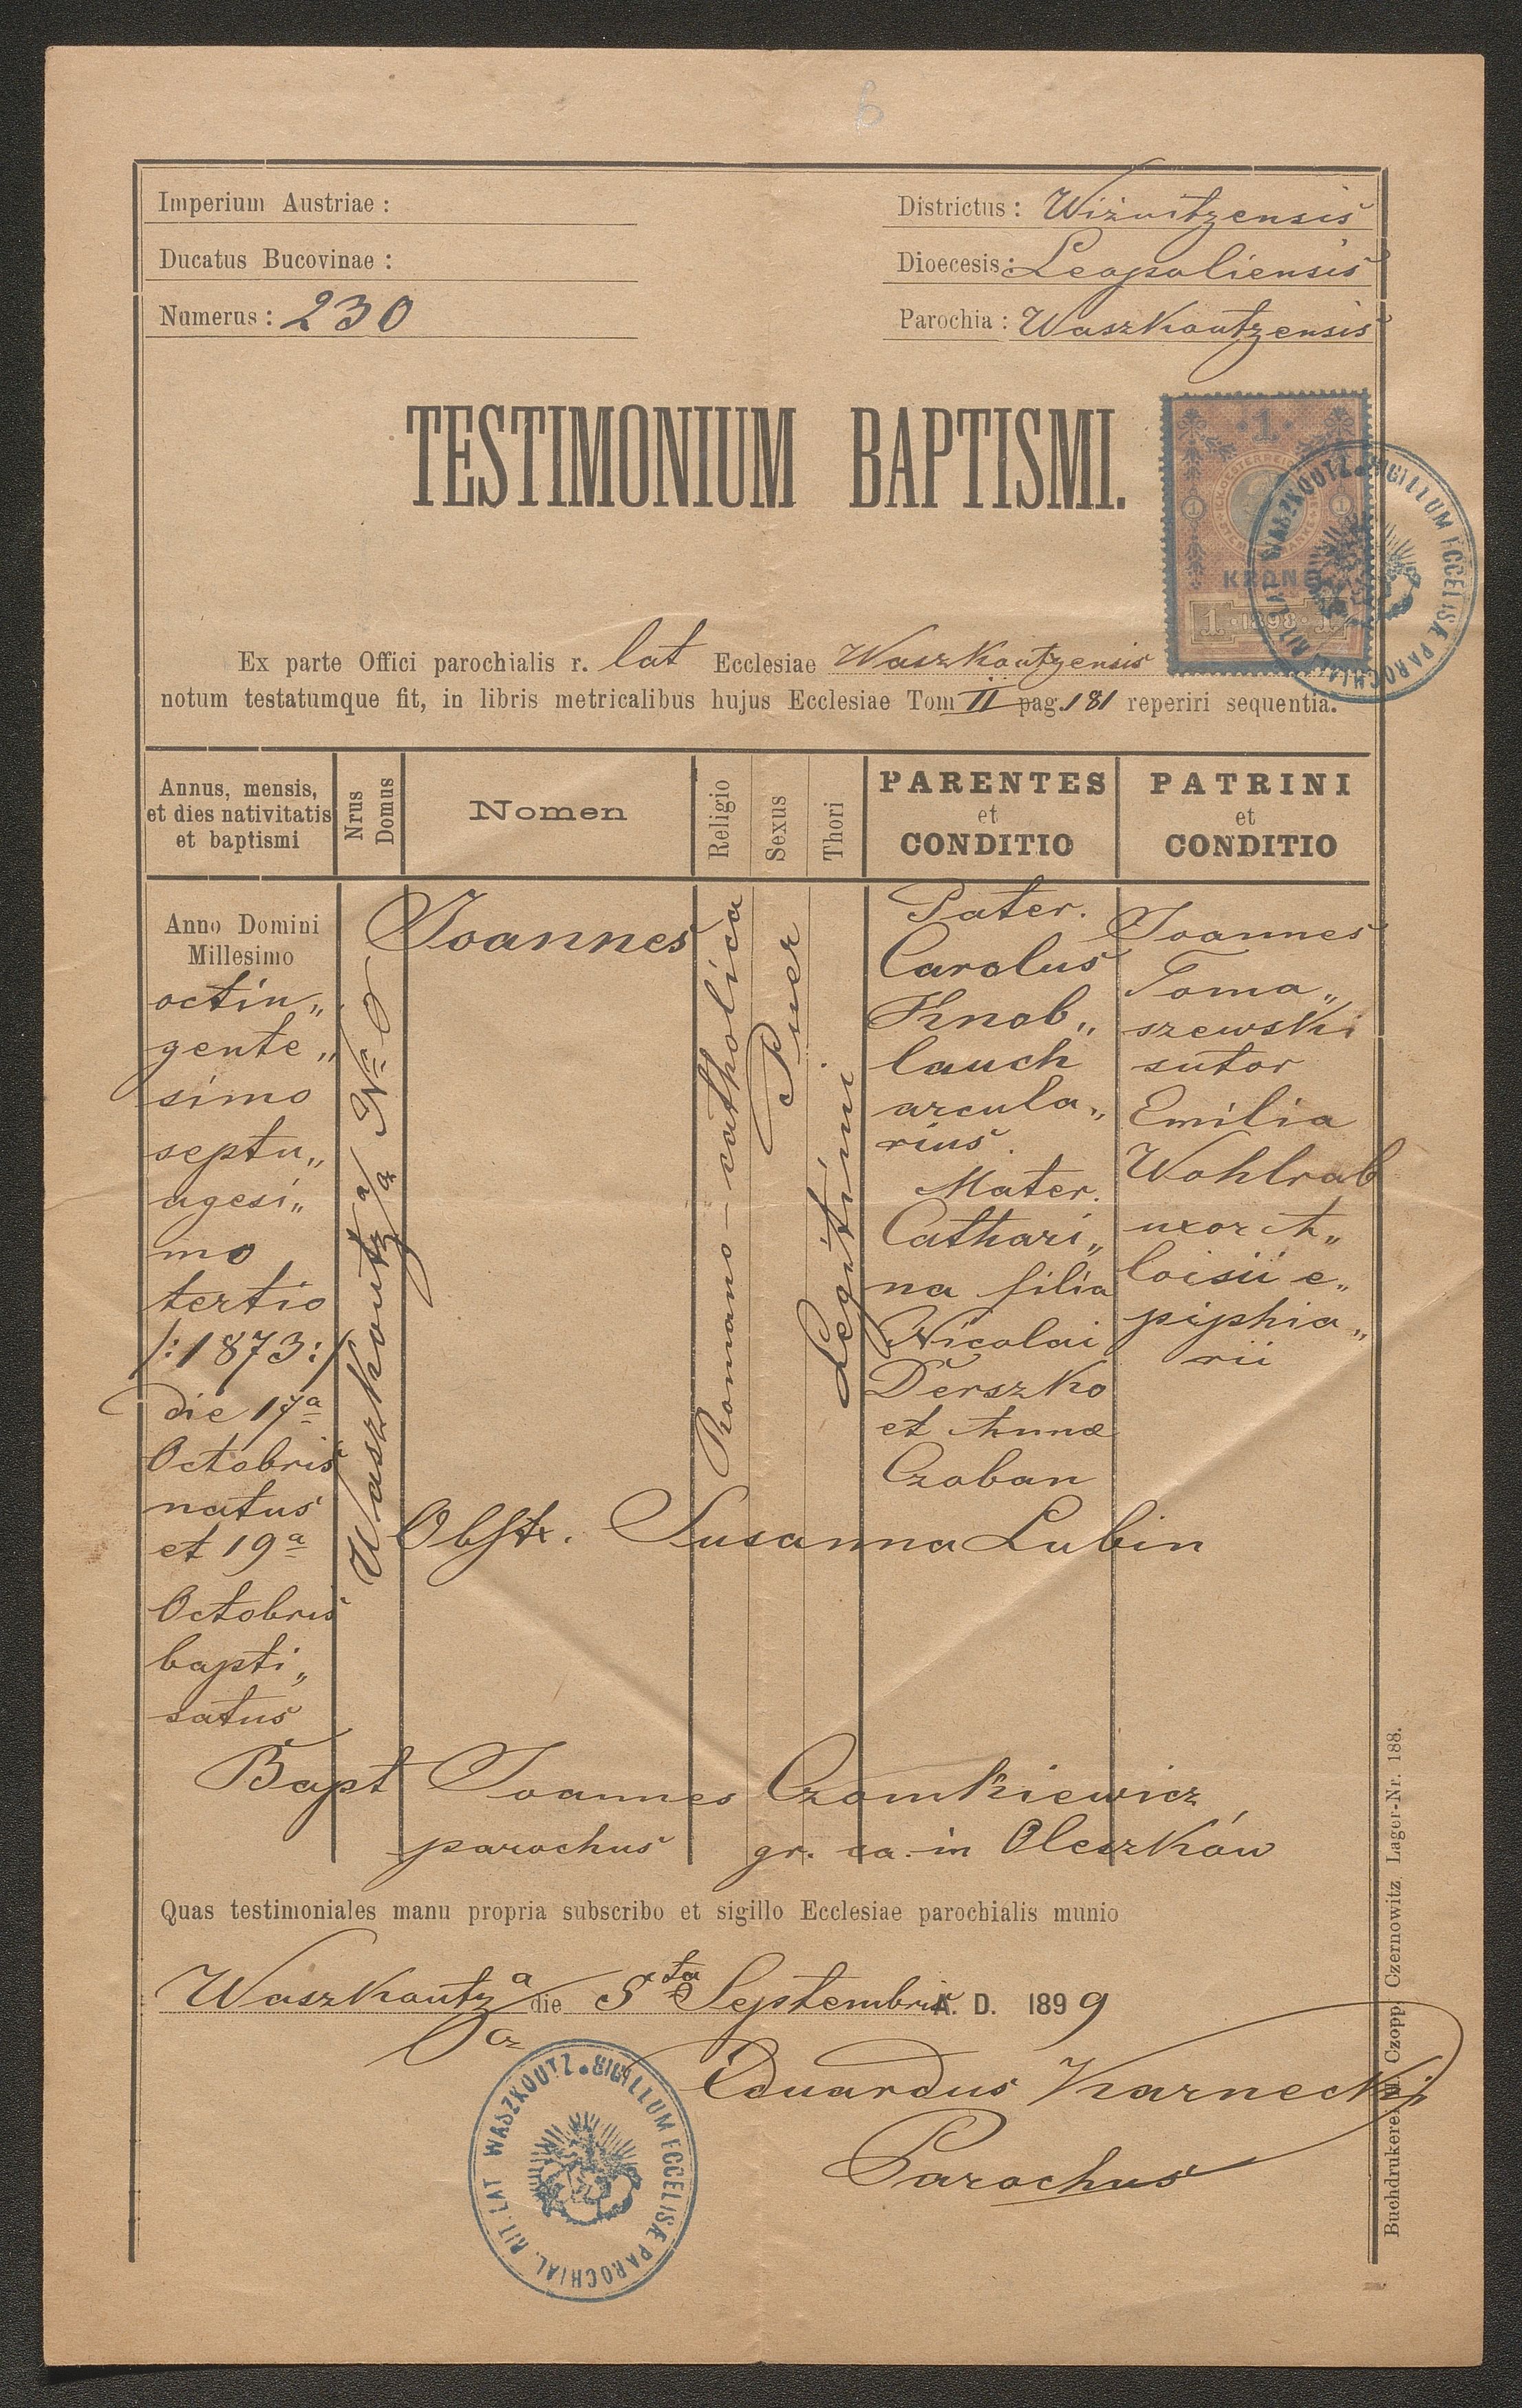 Imperium Austriae :
Ducatus Bucovinae :
Numerus : 230
Districtus : Wiżnitzensis
Dioecesis : Leopoliensis
Parochia : Waszkoutzensis
TESTIMONIUM BAPTISMI.
1
KRONE
1 · 1898 · 1
WASZKOUTZ • SIGILLUM ECCELISÆ PAROCHIAL. RIT. LAT
Ex parte Offici parochialis r. lat Ecclesiae Waszkoutzensis
notum testatumque fit, in libris metricalibus hujus Ecclesiae Tom II pag. 181 reperiri sequentia.
Annus, mensis,
et dies nativitatis
et baptismi
Nrus
Domus
Nomen
Religio
Sexus
Thori
PARENTES
et
CONDITIO
PATRINI
et
CONDITIO
Anno Domini
Millesimo
octin„
gente„
simo
septu„
agesi„
mo
tertio
/:1873:/
die 17ª
Octobris
natus
et 19ª
Octobris
bapti„
satus
Waszkoutz a/a Nª 0
Joannes
Romano - catholica
Puer
Legitimi
Pater.
Carolus
Knob„
lauch
arcula„
rius.
Mater.
Cathari„
na filia
Nicolai
Derszko
et Annæ
Czoban
Joannes
Toma„
szewski
sutor
Emilia
Wohlrab
uxor A„
loisii e„
piphia„
rii
Obstr. Susanna Lubin
Bapt Joannes Czomkiewicz
parochus gr. ca. in Oleszków
Quas testimoniales manu propria subscribo et sigillo Ecclesiae parochialis munio
Waszkoutz a/cz die 5ta Septembris A. D. 1899
Eduardus Karnecki
Parochus
WASZKOUTZ • SIGILLUM ECCELISÆ PAROCHIAL. RIT. LAT
Buchdrukerei M. Czopp, Czernowitz, Lager-Nr. 188.